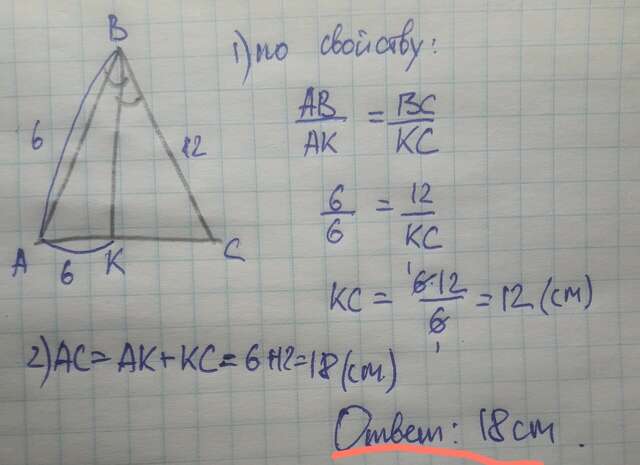 B
1) по свойству:
AB/AK = BC/KC
6 12
6/6 = 12/KC
A 6 K C
KC = 6·12/6 = 12 (см)
2) AC = AK + KC = 6+12 = 18 (см)
Ответ: 18 см.